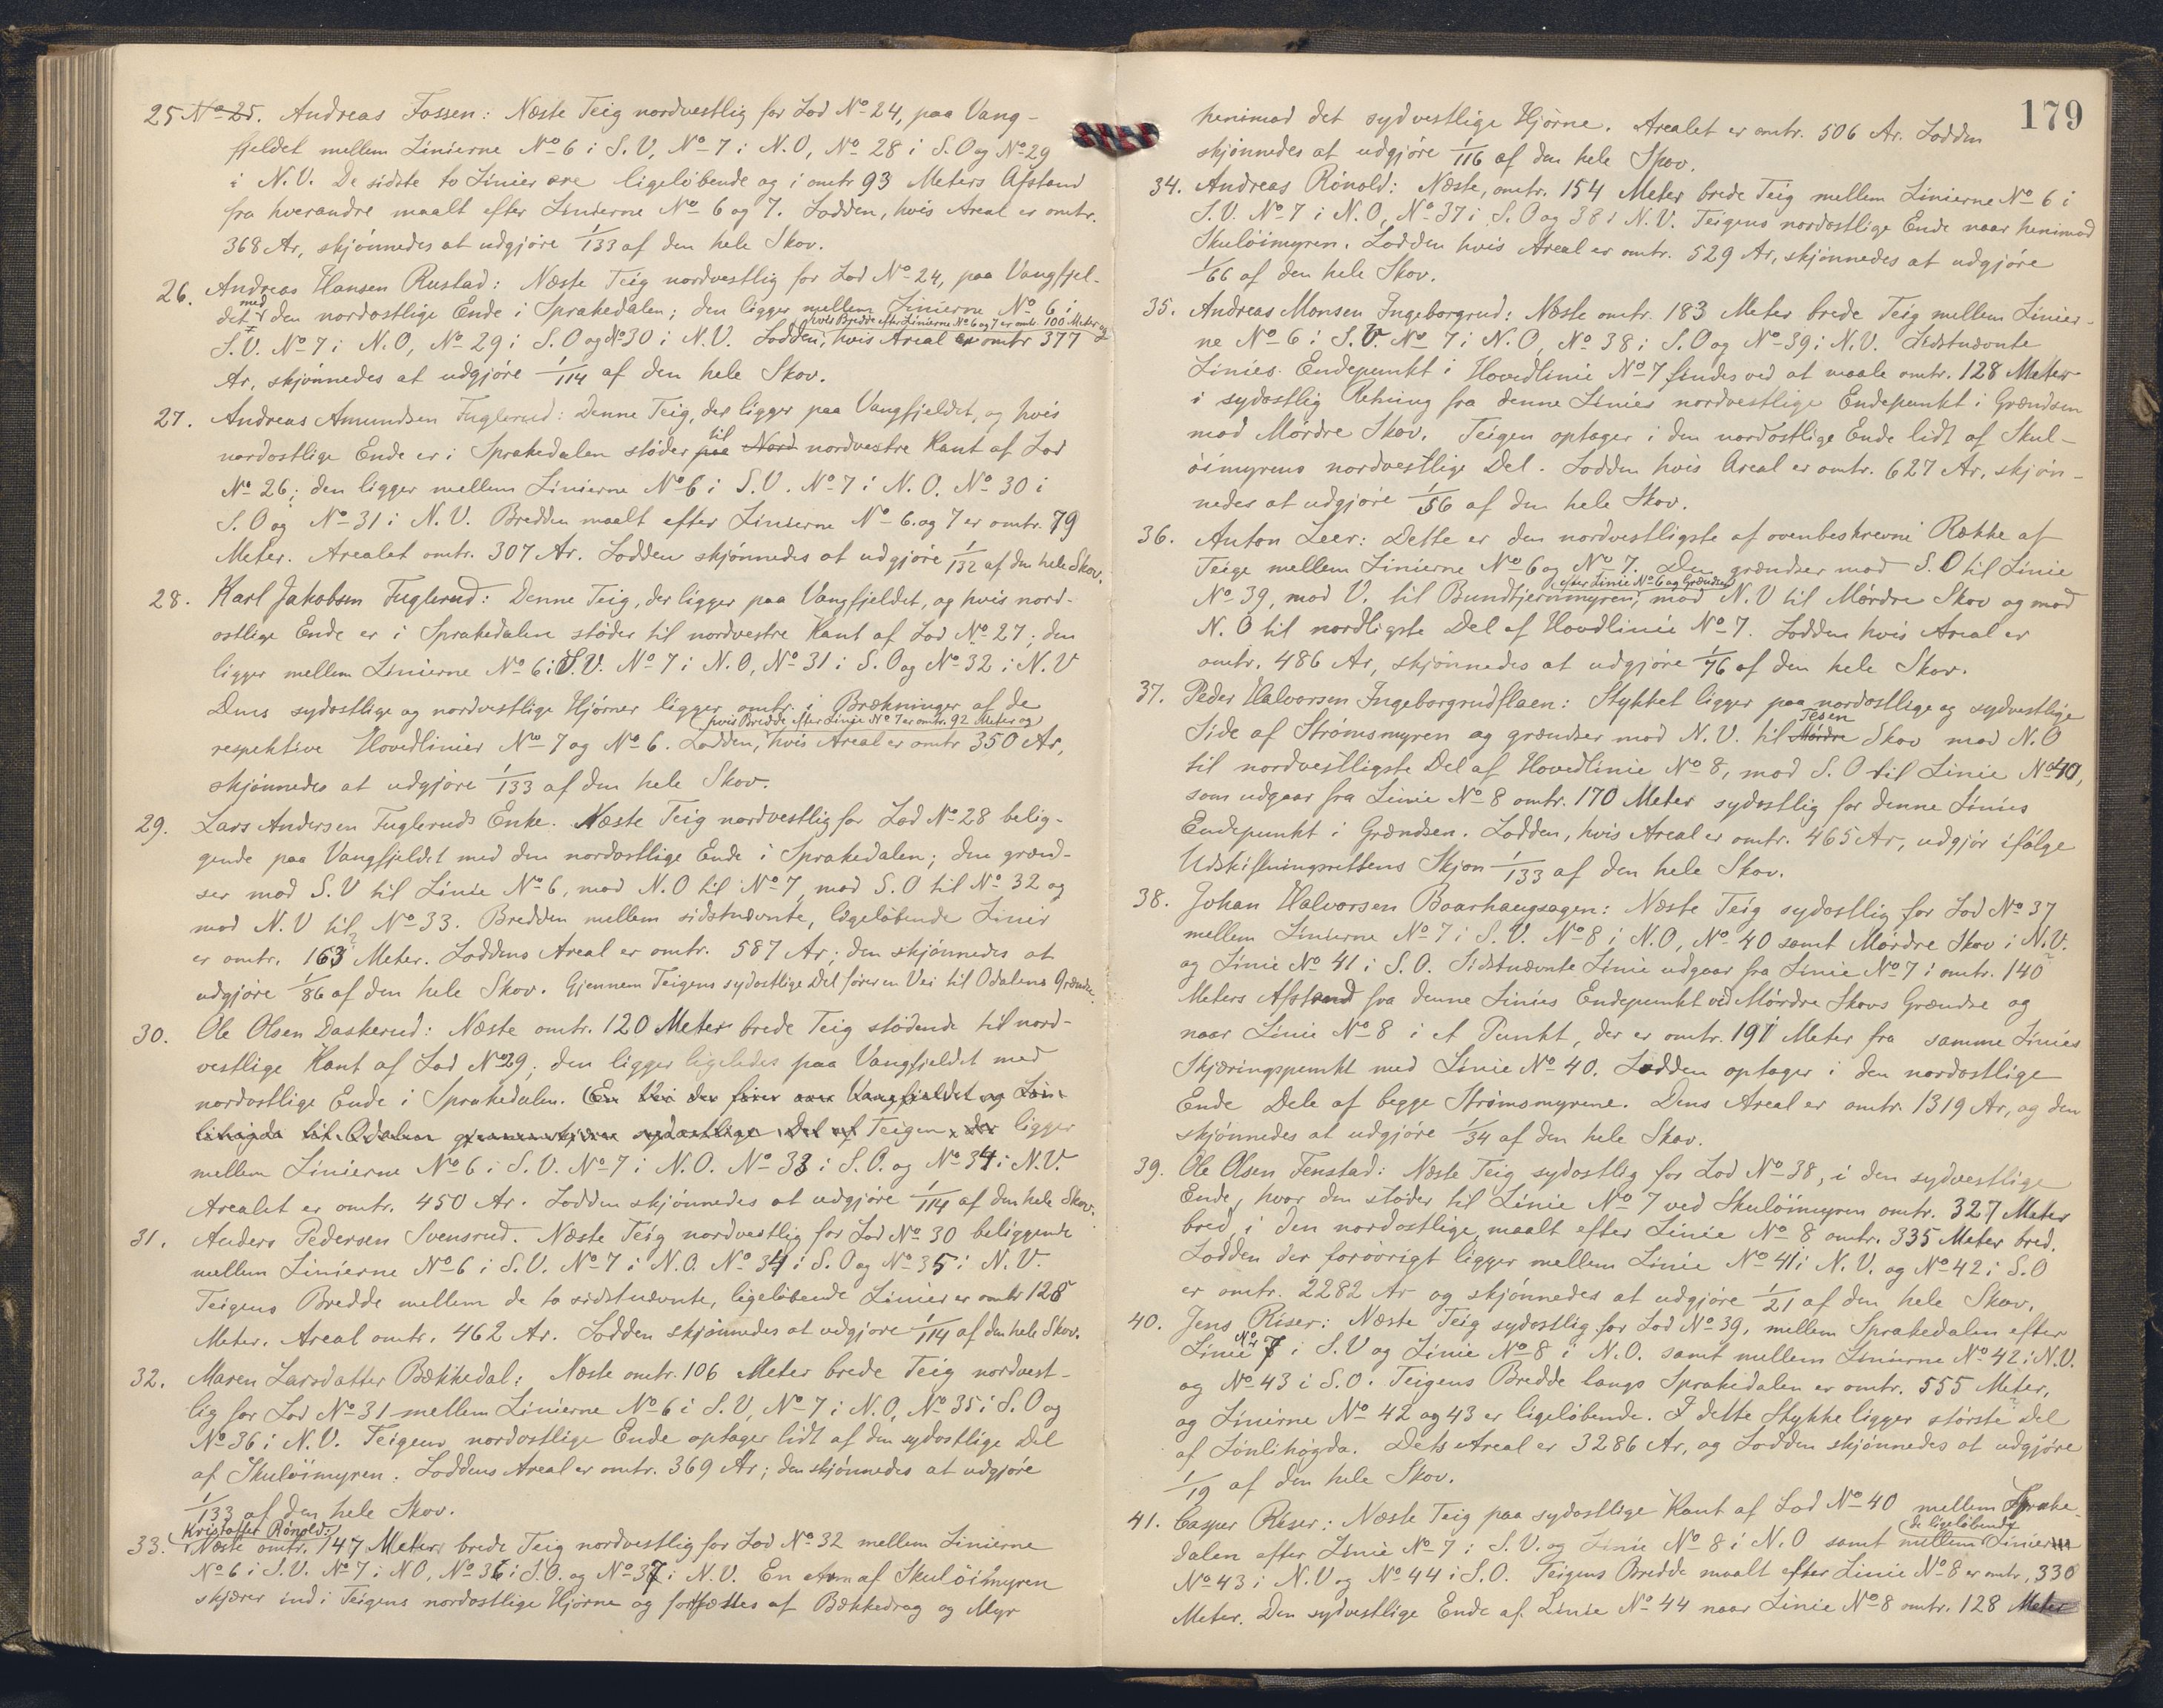 25 No 25. Andreas Fossen: Næste Teig nordvestlig for Lod No 24, paa Vang-
fjeldet mellem Linierne No 6 i S.V, No 7 i N.O, No 28 i S.O og No 29
i N.V. De sidste to Linier ere ligeløbende og i omtr 93 Meters Afstand
fra hverandre maalt efter Linierne No 6 og 7. Lodden, hvis Areal er omtr.
368 Ar, skjønnedes at udgjøre 1/133 af den hele Skov.
26. Andreas Hansen Rustad: Næste Teig nordvestlig for Lod No 24, paa Vangfjel-
det med den nordostlige Ende i Sprakedalen; den ligger mellem Linierne No 6 i
hvis Bredde efter Linierne No 6 og 7 er omtr. 100 Meter og
S.V. No 7 i N.O, No 29 i S.O og No 30 i N.V. Lodden, hvis Areal er omtr 377
Ar, skjønnedes at udgjøre 1/114 af den hele Skov.
27. Andreas Amundsen Fuglerud: Denne Teig, der ligger paa Vangfjeldet, og hvis
nordostlige Ende er i Sprakedalen støder paa til Nord nordvestre Kant af Lod
No 26; den ligger mellem Linierne No 6 i S.V. No 7 i N.O. No 30 i
S.O og No 31 i N.V. Bredden maalt efter Linierne No 6 og 7 er omtr. 79
Meter. Arealet omtr. 307 Ar. Lodden skjønnedes at udgjøre 1/132 af den hele Skov.
28. Karl Jakobsen Fuglerud: Denne Teig, der ligger paa Vangfjeldet, og hvis nord-
ostlige Ende er i Sprakedalen støder til nordvestre Kant af Lod No 27; den
ligger mellem Linierne No 6 i S.V. No 7 i N.O, No 31 i S.O og No 32 i N.V
Dens sydostlige og nordvestlige Hjørner ligger omtr. i Brækninger af de
hvis Bredde efter Linie No 7 er omtr. 92 Meter og
respektive Hovedlinier No 7 og No 6. Lodden, hvis Areal er omtr 350 Ar,
skjønnedes at udgjøre 1/133 af den hele Skov.
29. Lars Andersen Fugleruds Enke. Næste Teig nordvestlig for Lod No 28 belig-
gende paa Vangfjeldet med den nordostlige Ende i Sprakedalen; den grænd-
ser mod S.V til Linie No 6, mod N.O til No 7, mod S.O til No 32 og
mod N.V til No 33. Bredden mellem sidstnævnte, ligeløbende Linier
er omtr. 163 Meter. Loddens Areal er omtr. 587 Ar; den skjønnedes at
udgjøre 1/86 af den hele Skov. Gjennem Teigens sydostlige Del fører en Vei til Odalens Grændse.
30. Ole Olsen Daskerud: Næste omtr. 120 Meter brede Teig stødende til nord-
vestlige Kant af Lod No 29; den ligger ligeledes paa Vangfjeldet med
nordostlige Ende i Sprakedalen. (En Vei der fører over Vangfjeldet og Løn-
lihøgda til Odalen gjennemskjærer sydostlige Del af Teigen, der ligger
mellem Linierne No 6 i S.V. No 7 i N.O. No 33 i S.O. og No 34 i N.V.
Arealet er omtr. 450 Ar. Lodden skjønnedes at udgjøre 1/114 af den hele Skov.
31. Anders Pedersen Svensrud. Næste Teig nordvestlig for Lod No 30 beliggende
mellem Linierne No 6 i S.V. No 7 i N.O. No 34 i S.O og No 35 i N.V.
Teigens Bredde mellem de to sidstnævnte, ligeløbende Linier er omtr 128
Meter. Areal omtr. 462 Ar. Lodden skjønnedes at udgjøre 1/114 af den hele Skov.
32. Maren Larsdatter Bækkedal: Næste omtr. 106 Meter brede Teig nordvest-
lig for Lod No 31 mellem Linierne No 6 i S.V, No 7 i N.O, No 35 i S.O og
No 36 i N.V. Teigens nordostlige Ende optager lidt af den sydostlige Del
af Skuløimyren. Loddens Areal er omtr. 369 Ar; den skjønnedes at udgjøre
1/133 af den hele Skov.
Kristoffer Rønold:
33. Næste omtr. 147 Meter brede Teig nordvestlig for Lod No 32 mellem Linierne
No 6 i S.V. No 7 i N.O, No 36 i S.O. og No 37 i N.V. En Arm af Skuløimyren
skjærer ind i Teigens nordostlige Hjørne og fortsættes af Bækkedrag og Myr
179
henimod det sydvestlige Hjørne. Arealet er omtr. 506 Ar. Lodden
skjønnedes at udgjøre 1/116 af den hele Skov.
34. Andreas Rönold: Næste, omtr. 154 Meter brede Teig mellem Linierne No 6 i
S.V. No 7 i N.O, No 37 i S.O og 38 i N.V. Teigens nordostlige Ende naar henimod
Skuløimyren. Lodden hvis Areal er omtr. 529 Ar, skjønnedes at udgjøre
1/66 af den hele Skov.
35. Andreas Monsen Ingeborgrud: Næste omtr. 183 Meter brede Teig mellem Linier-
ne No 6 i S.V. No 7 i N.O, No 38 i S.O og No 39 i N.V. Sidstnævnte
Linies Endepunkt i Hovedlinie No 7 findes ved at maale omtr. 128 Meter
i sydostlig Retning fra denne Linies nordvestlige Endepunkt i Grændsen
mod Mørdre Skov. Teigen optager i den nordostlige Ende lidt af Skul-
øimyrens nordvestlige Del. Lodden hvis Areal er omtr. 627 Ar, skjøn-
nedes at udgjøre 1/56 af den hele Skov.
36. Anton Leer: Dette er den nordvestligste af ovenbeskrevne Række af
Teige mellem Linierne No 6 og No 7. Den grændser mod S.O til Linie
efter Linie No 6 og Grændsen
No 39, mod V. til Bundtjernmyren, mod N.V til Mørdre Skov og mod
N.O til nordligste Del af Hovdlinie No 7. Lodden hvis Areal er
omtr. 486 Ar, skjønnedes at udgjøre 1/76 af den hele Skov.
37. Peder Halvorsen Ingeborgrudflaen: Stykket ligger paa nordostlige og sydvestlige
Side af Strømsmyren og grændser mod N.V. til Mørdre Tesen Skov mod N.O
til nordvestligste Del af Hovedlinie No 8, mod S.O til Linie No 40,
som udgaar fra Linie No 8 omtr. 170 Meter sydostlig for denne Linies
Endepunkt i Grændsen. Lodden, hvis Areal er omtr. 465 Ar, udgjør ifølge
Udskiftningsrettens Skjøn 1/133 af den hele Skov.
38. Johan Halvorsen Baarhaugsagen: Næste Teig sydostlig for Lod No 37
mellem Linierne No 7 i S.V. No 8 i N.O, No 40 samt Mørdre Skov i N.V.
og Linie No 41 i S.O. Sidstnævnte Linie udgaar fra Linie No 7 i omtr. 140
Meters Afstand fra denne Linies Endepunkt ved Mørdre Skovs Grændse og
naar Linie No 8 i et Punkt, der er omtr. 191 Meter fra samme Linies
Skjæringspunkt med Linie No 40. Lodden optager i den nordostlige
Ende Dele af begge Strømsmyrene. Dens Areal er omtr. 1319 Ar, og den
skjønnedes at udgjøre 1/34 af den hele Skov.
39. Ole Olsen Fenstad: Næste Teig sydostlig for Lod No 38, i den sydvestlige
Ende, hvor den støder til Linie No 7 ved Skuløimyren omtr. 327 Meter
bred, i den nordostlige, maalt efter Linie No 8 omtr. 335 Meter bred.
Lodden der forøvrigt ligger mellem Linie No 41 i N.V. og No 42 i S.O
er omtr. 2282 Ar og skjønnedes at udgjøre 1/21 af den hele Skov.
40. Jens Riser: Næste Teig sydostlig for Lod No 39, mellem Sprakedalen efter
Linie No 7 i S.V og Linie No 8 i N.O. samt mellem Linierne No 42 i N.V.
og No 43 i S.O. Teigens Bredde langs Sprakedalen er omtr. 555 Meter,
og Linierne No 42 og 43 er ligeløbende. I dette Stykke ligger største Del
af Lønlihøgda. Dets Areal er 3286 Ar, og Lodden skjønnedes at udgjøre
1/19 af den hele Skov.
41. Casper Riser: Næste Teig paa sydostlige Kant af Lod No 40 mellem Sprake-
de ligeløbende
dalen efter Linie No 7 i S.V. og Linie No 8 i N.O samt mellem Linierne
No 43 i N.V og No 44 i S.O. Teigens Bredde maalt efter Linie No 8 er omtr. 330
Meter. Den sydvestlige Ende af Linie No 44 naar Linie No 8 omtr. 128 Meter